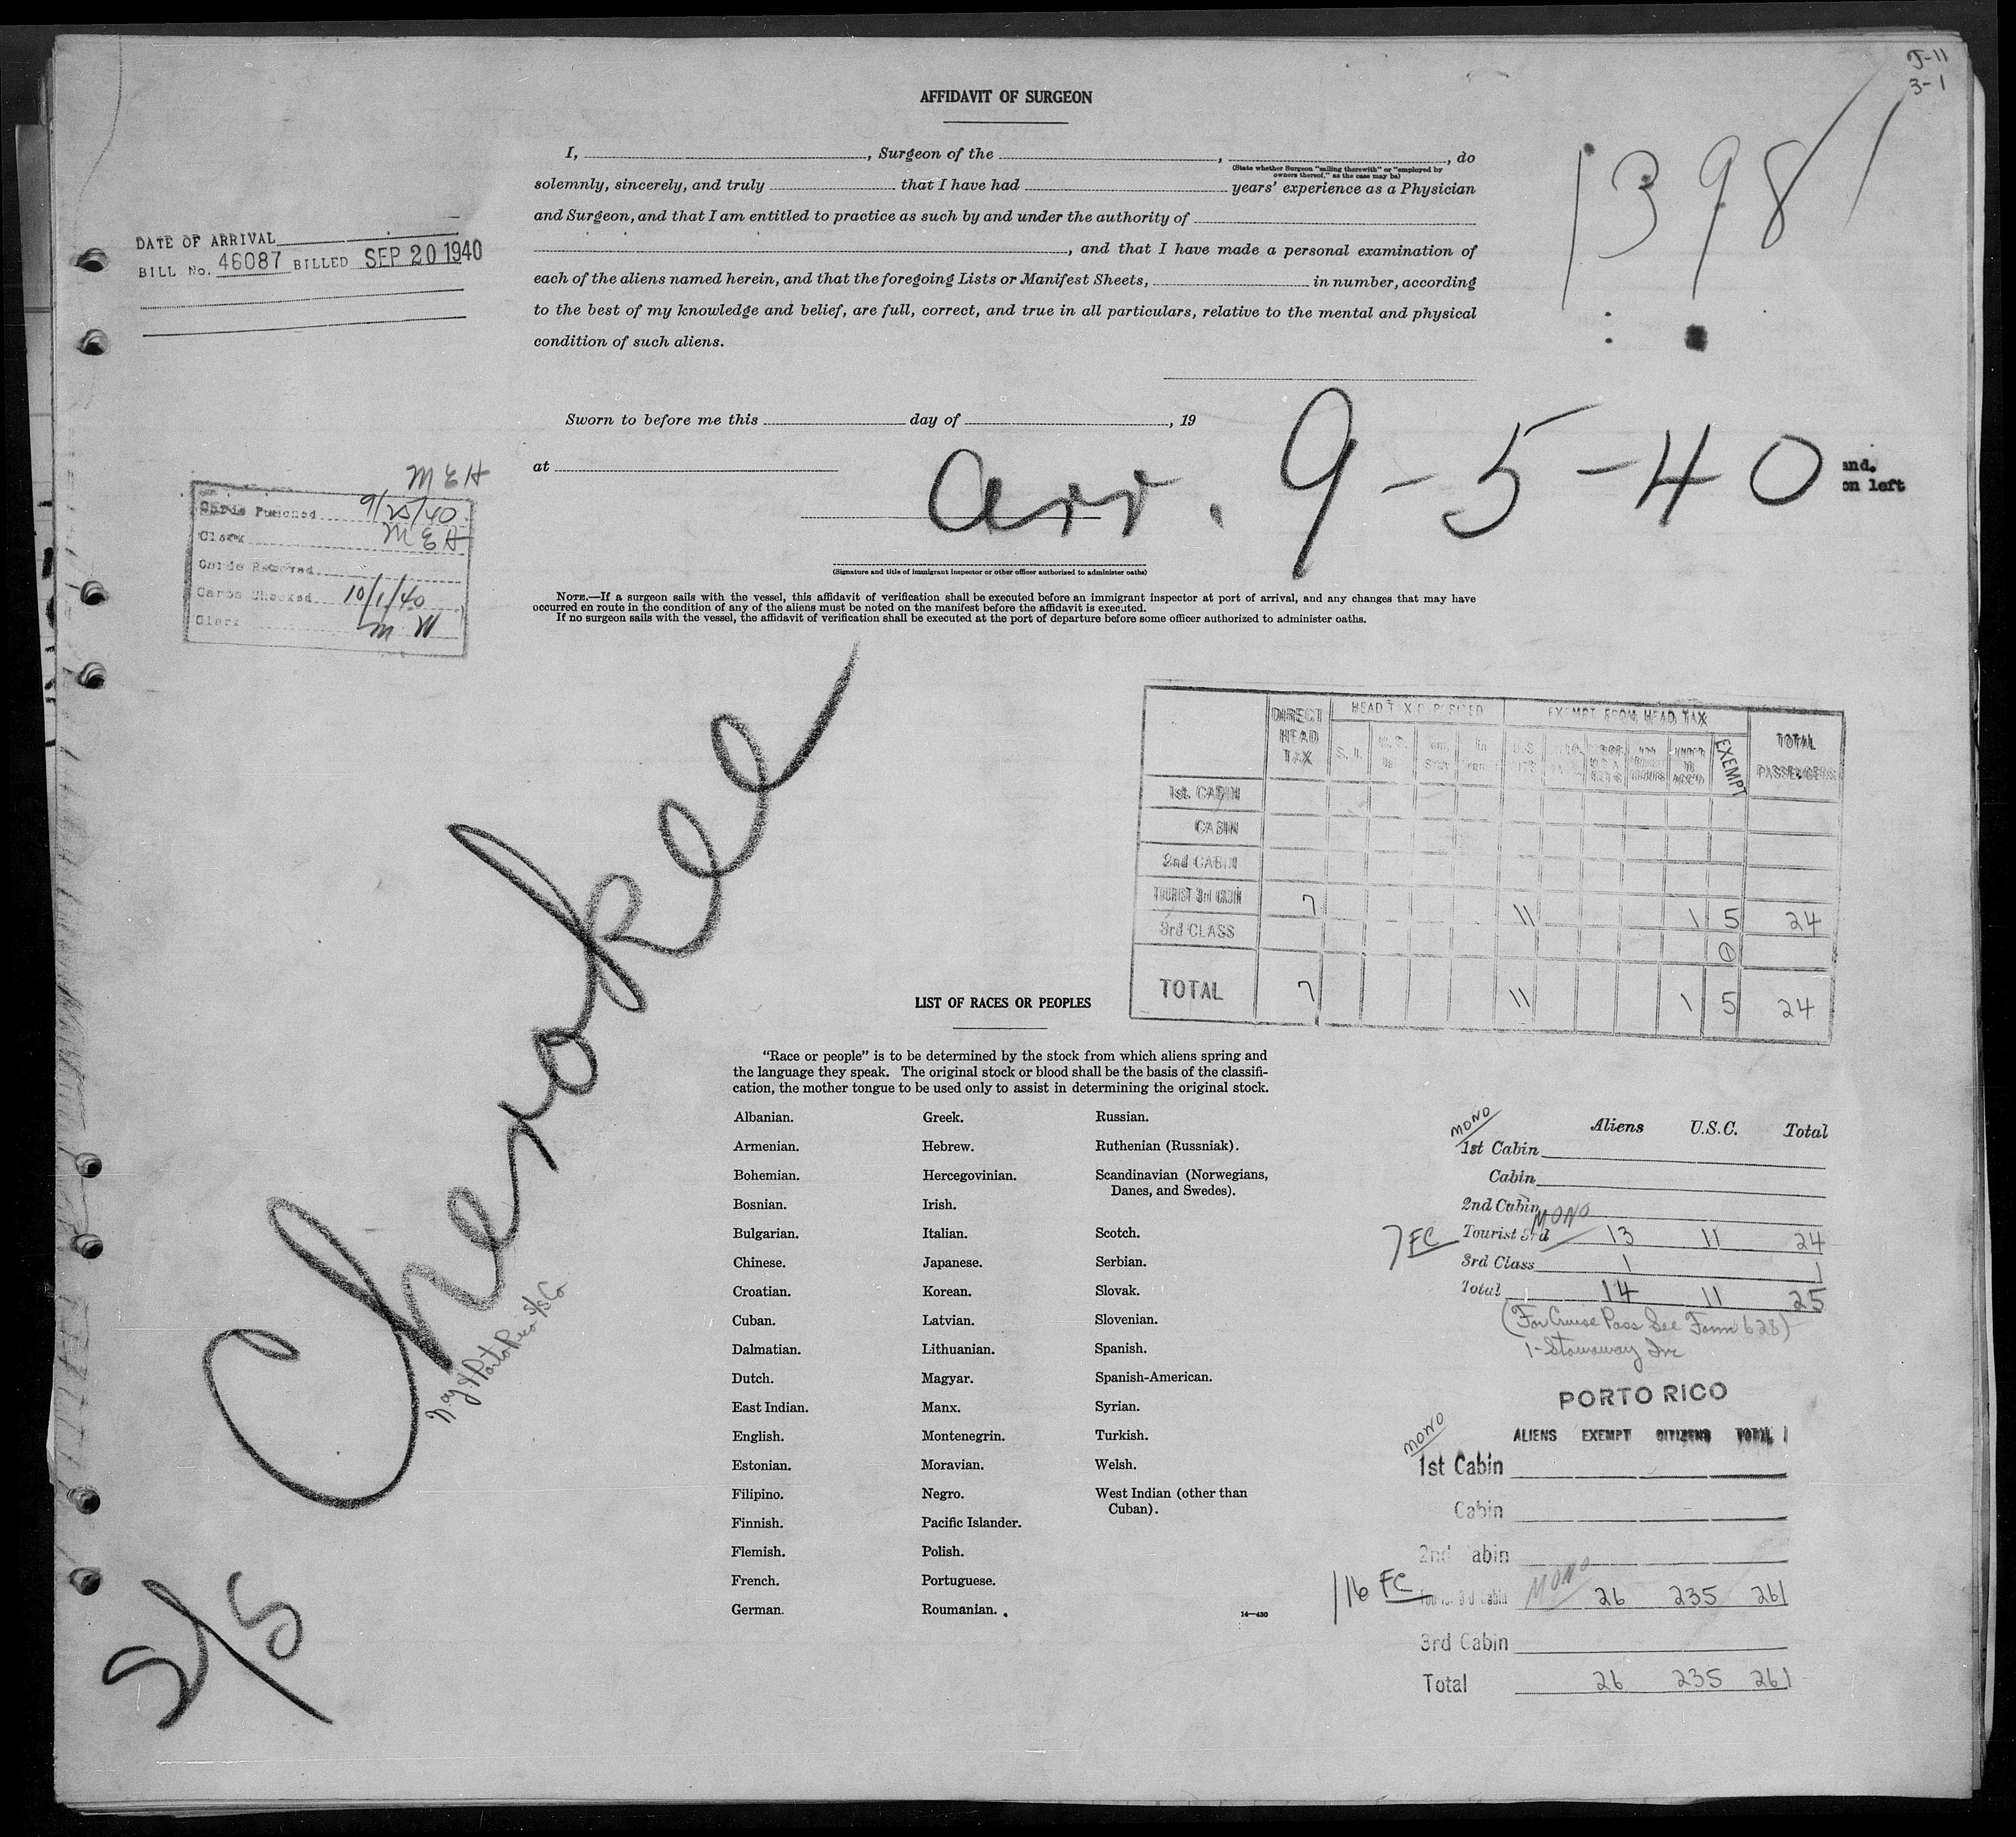 J-11
3-1
1398
AFFIDAVIT OF SURGEON
I, , Surgeon of the , , do
(State whether Surgeon "sailing therewith" or "employed by
owners thereof," as the case may be)
solemnly, sincerely, and truly that I have had years' experience as a Physician
and Surgeon, and that I am entitled to practice as such by and under the authority of
, and that I have made a personal examination of
each of the aliens named herein, and that the foregoing Lists or Manifest Sheets, in number, according
to the best of my knowledge and belief, are full, correct, and true in all particulars, relative to the mental and physical
condition of such aliens.
DATE OF ARRIVAL
BILL No. 46087 BILLED SEP 20 1940
Sworn to before me this day of , 19
at
arr. 9-5-40
and.
on left
(Signature and title of immigrant inspector or other officer authorized to administer oaths)
MEH
Cards Punched 9/25/40
Clerk MEH
Cards Removed
Cards Checked 10/1/40
Clerk MW
NOTE.—If a surgeon sails with the vessel, this affidavit of verification shall be executed before an immigrant inspector at port of arrival, and any changes that may have
occurred en route in the condition of any of the aliens must be noted on the manifest before the affidavit is executed.
If no surgeon sails with the vessel, the affidavit of verification shall be executed at the port of departure before some officer authorized to administer oaths.
S/S Cherokee
N.Y. & Porto Rico S/S Co
DIRECT HEAD TAX HEAD TAX DEPOSITED EXEMPT FROM HEAD TAX TOTAL PASSENGERS
EXEMPT
1st. CABIN
CABIN
2nd CABIN
TOURIST 3rd CABIN 7 11 1 5 24
3rd CLASS ①
TOTAL 7 11 1 5 24
LIST OF RACES OR PEOPLES
"Race or people" is to be determined by the stock from which aliens spring and
the language they speak. The original stock or blood shall be the basis of the classifi-
cation, the mother tongue to be used only to assist in determining the original stock.
Albanian.
Armenian.
Bohemian.
Bosnian.
Bulgarian.
Chinese.
Croatian.
Cuban.
Dalmatian.
Dutch.
East Indian.
English.
Estonian.
Filipino.
Finnish.
Flemish.
French.
German.
Greek.
Hebrew.
Hercegovinian.
Irish.
Italian.
Japanese.
Korean.
Latvian.
Lithuanian.
Magyar.
Manx.
Montenegrin.
Moravian.
Negro.
Pacific Islander.
Polish.
Portuguese.
Roumanian.
Russian.
Ruthenian (Russniak).
Scandinavian (Norwegians,
Danes, and Swedes).
Scotch.
Serbian.
Slovak.
Slovenian.
Spanish.
Spanish-American.
Syrian.
Turkish.
Welsh.
West Indian (other than
Cuban).
14—430
MONO Aliens U.S.C. Total
1st Cabin
Cabin
2nd Cabin
7 FC Tourist 3rd MONO 13 11 24
3rd Class 1 1
Total 14 11 25
(For Cruise Pass See Form 628)
1-Stowaway Inc
PORTO RICO
MONO ALIENS EXEMPT CITIZENS TOTAL
1st Cabin
Cabin
2nd Cabin
116 FC Tourist 3rd Cabin MONO 26 235 261
3rd Cabin
Total 26 235 261